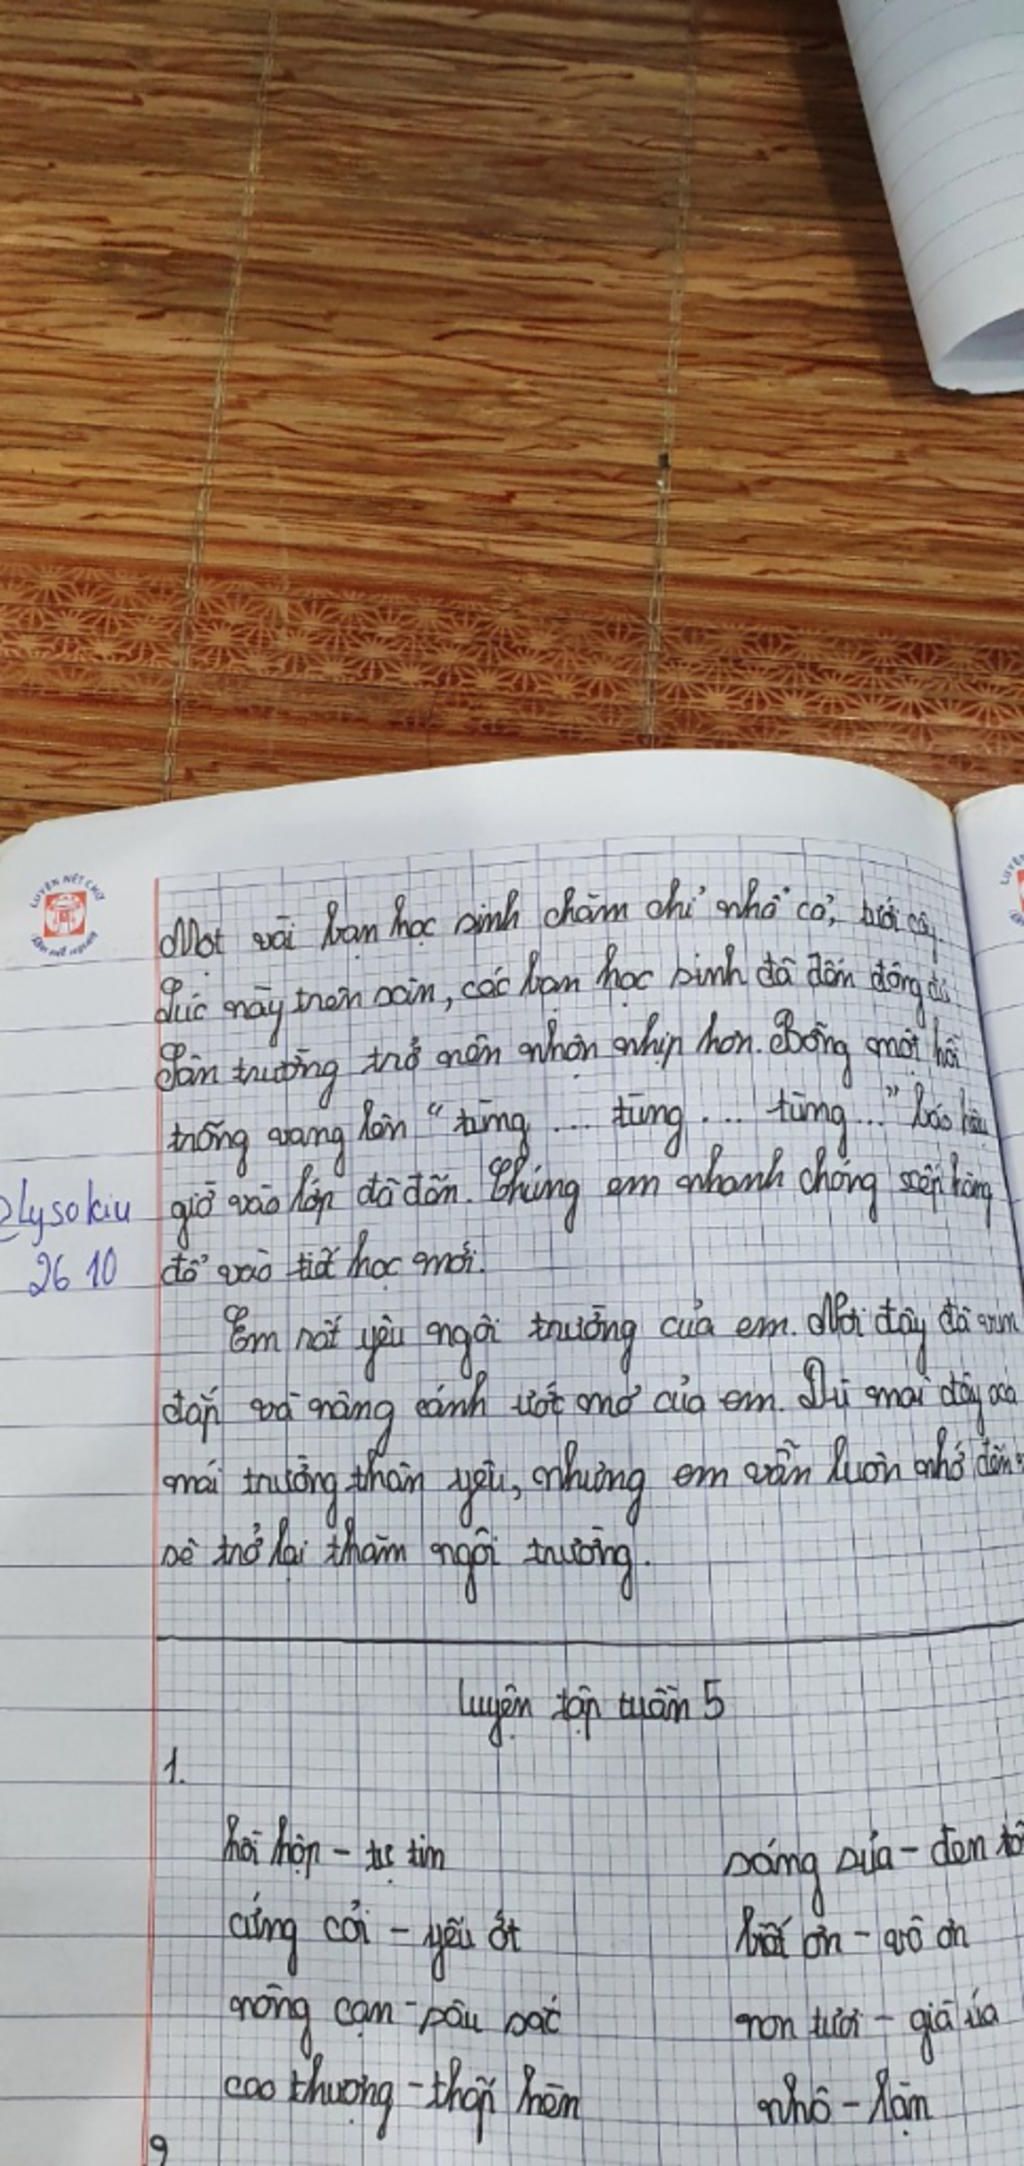 LUYỆN NẾT CHỮ
RÈN NẾT NGƯỜI
Một vài bạn học sinh chăm chỉ nhổ cỏ, tưới cây.
Lúc này trên sân, các bạn học sinh đã đến đông đủ.
Sân trường trở nên nhộn nhịp hơn. Bỗng một hồi
trống vang lên “tùng ... tùng ... tùng...” báo hiệu
giờ vào lớp đã đến. Chúng em nhanh chóng xếp hàng
để vào tiết học mới.
@Lysokiu
26 10
Em rất yêu ngôi trường của em. Nơi đây đã vun
đắp và nâng cánh ước mơ của em. Dù mai đây xa
mái trường thân yêu, nhưng em vẫn luôn nhớ đến
sẽ trở lại thăm ngôi trường.
Luyện tập tuần 5
1.
hồi hộp - tự tin
sáng sủa - đen tối
cứng cỏi - yếu ớt
biết ơn - vô ơn
nông cạn - sâu sắc
non tươi - già úa
cao thượng - thấp hèn
nhô - lặn